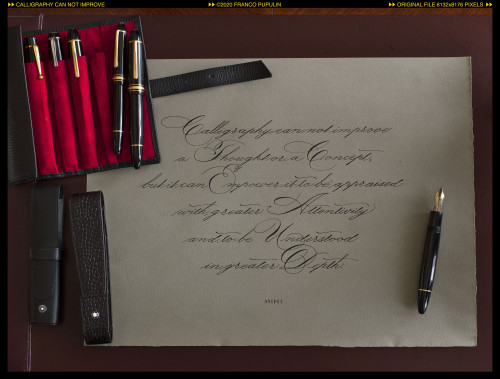 CALLIGRAPHY CAN NOT IMPROVE
©2020 FRANCO PUPULIN
ORIGINAL FILE 6132x8176 PIXELS
Calligraphy can not improve
a Thought or a Concept,
but it can Empower it to be appraised
with greater Attentivity
and to be Understood
in greater Depth.